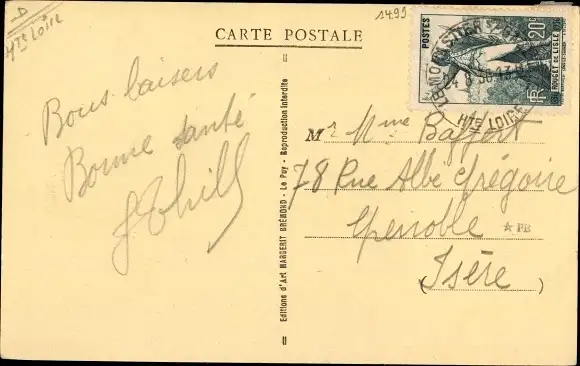 D
Hte Loire
1499
CARTE POSTALE
POSTES
20c
ROUGET DE LISLE
RF
LE MONASTIER
HTE LOIRE
Bons baisers
Bonne santé
Editions d'Art MARGERIT BRÉMOND - Le Puy - Reproduction interdite
Mr Mme
78 Rue Abbé Grégoire
Grenoble
★ PB
(Isère)